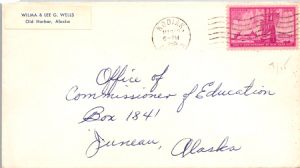 WILMA & LEE G. WELLS
Old Harbor, Alaska
KODIAK,
PM
Office of
Commissioner of Education
Box 1841
Juneau, Alaska